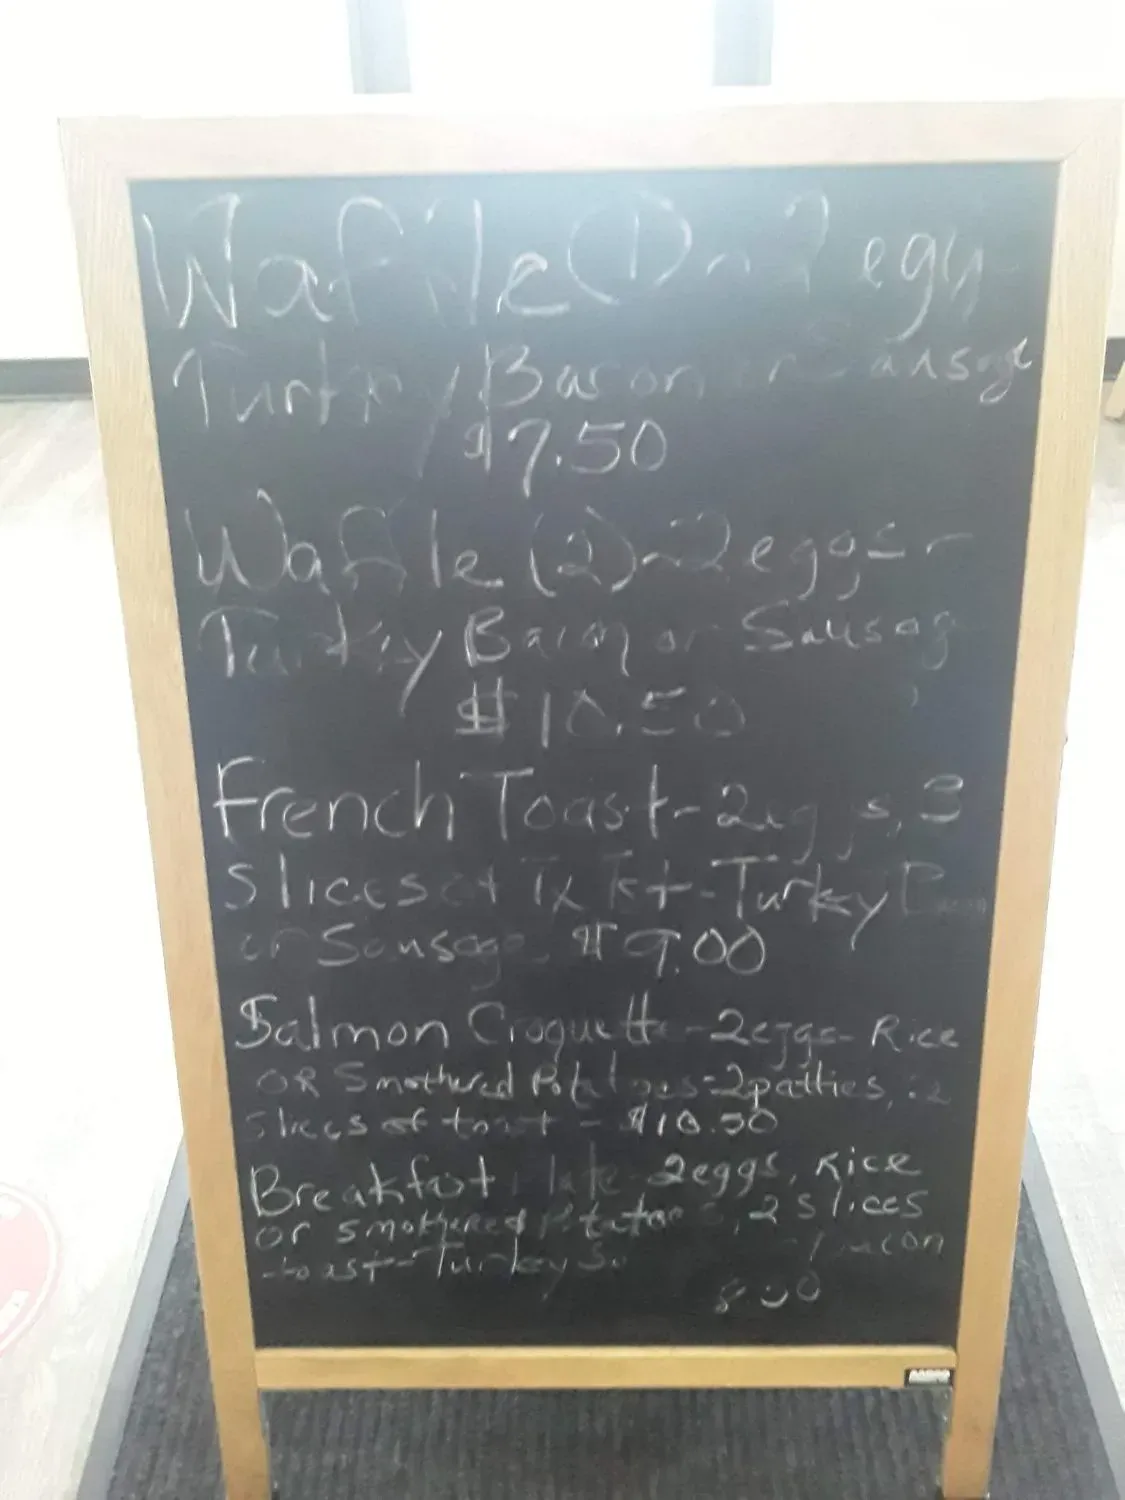 Waffle (1) - 2 eggs
Turkey Bacon or Sausage
$7.50
Waffle (2) - 2 eggs -
Turkey Bacon or Sausag
$10.50
French Toast - 2 eggs, 3
slices of Tx Tst - Turkey Bacon
or Sausage $9.00
Salmon Croquette - 2 eggs - Rice
OR Smothered Potatoes - 2 patties, 2
slices of toast - $10.50
Breakfast Plate 2 eggs, Rice
or smothered Potatoes, 2 slices
toast - Turkey Bacon